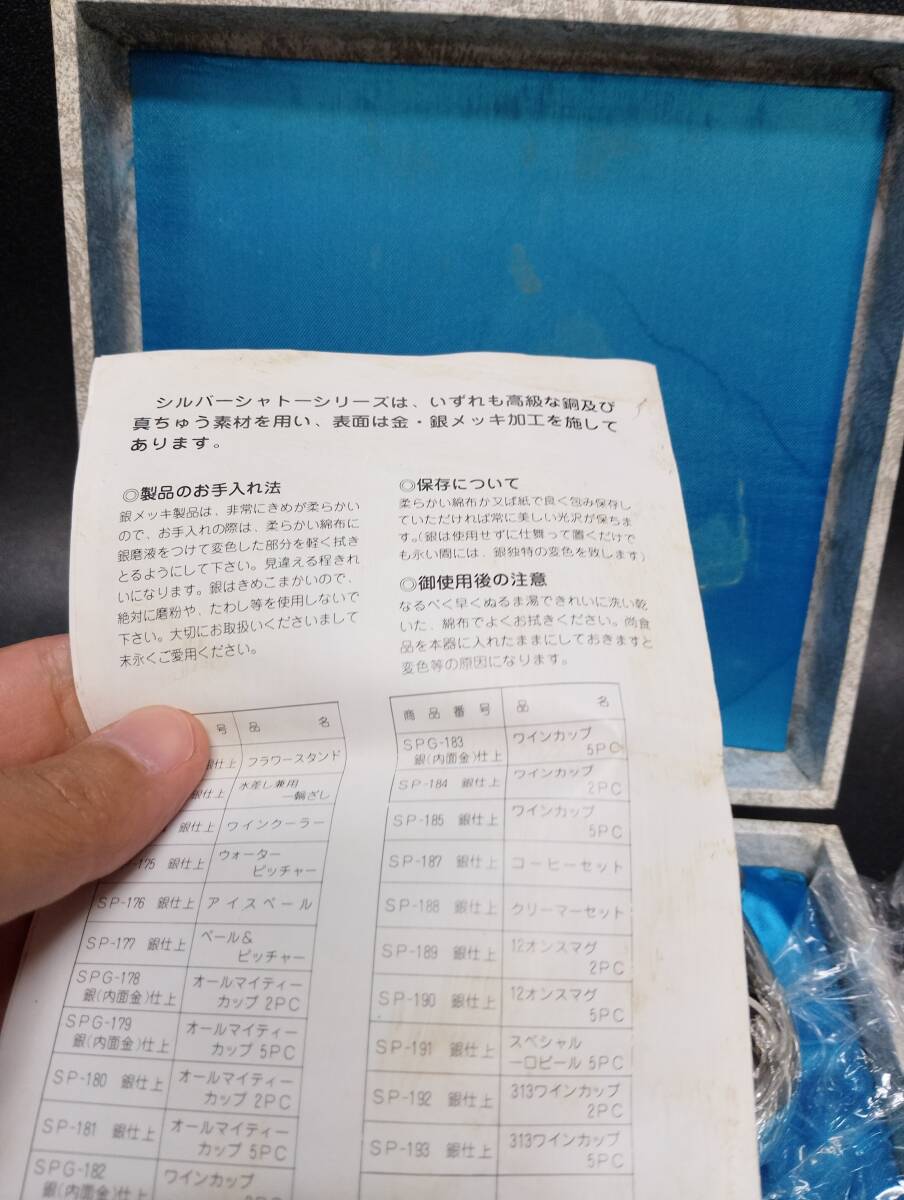 シルバーシャトーシリーズは、いずれも高級な銅及び
真ちゅう素材を用い、表面は金・銀メッキ加工を施して
あります。
◎製品のお手入れ法
銀メッキ製品は、非常にきめが柔らかい
ので、お手入れの際は、柔らかい綿布に
銀磨液をつけて変色した部分を軽く拭き
とるようにして下さい。見違える程きれ
いになります。銀はきめこまかいので、
絶対に磨粉や、たわし等を使用しないで
下さい。大切にお取扱いくださいまして
末永くご愛用ください。
◎保存について
柔らかい綿布か又ば紙で良く包み保存し
ていただければ常に美しい光沢が保ちま
す。(銀は使用せずに仕舞って置くだけで
も永い間には、銀独特の変色を致します)
◎御使用後の注意
なるべく早くぬるま湯できれいに洗い乾
いた、綿布でよくお拭きください。尚食
品を本器に入れたままにしておきますと
変色等の原因になります。
号 品名
銀仕上 フラワースタンド
銀仕上 水差し兼用
一輪ざし
銀仕上 ワインクーラー
175 銀仕上 ウォーター
ピッチャー
SP-176 銀仕上 アイスペール
SP-177 銀仕上 ペール&
ピッチャー
SPG-178 オールマイティー
銀(内面金)仕上 カップ 2PC
SPG-179 オールマイティー
銀(内面金)仕上 カップ 5PC
SP-180 銀仕上 オールマイティー
カップ 2PC
SP-181 銀仕上 オールマイティー
カップ 5PC
SPG-182 ワインカップ
銀(内面金)仕上
商品番号 品名
SPG-183 ワインカップ
銀(内面金)仕上 5PC
SP-184 銀仕上 ワインカップ
2PC
SP-185 銀仕上 ワインカップ
5PC
SP-187 銀仕上 コーヒーセット
SP-188 銀仕上 クリーマーセット
SP-189 銀仕上 12オンスマグ
2PC
SP-190 銀仕上 12オンスマグ
5PC
SP-191 銀仕上 スペシャル
一口ビール 5PC
SP-192 銀仕上 313ワインカップ
2PC
SP-193 銀仕上 313ワインカップ
5PC